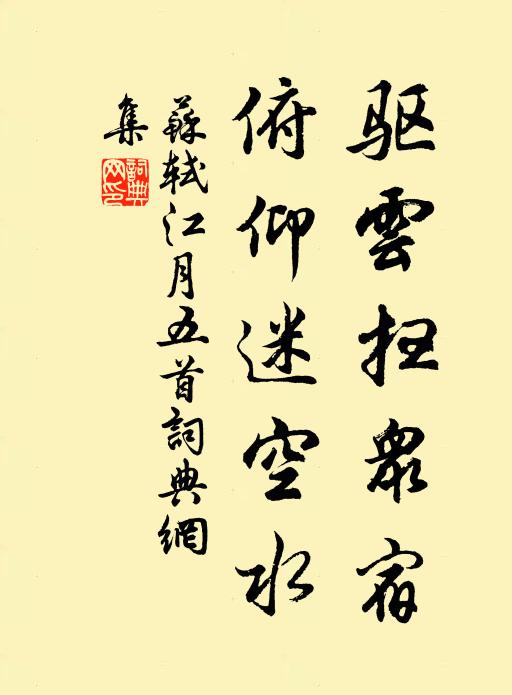 驱雲扫衆宿
俯仰迷空水
蘇軾江月五首詞典網
集
詞典
网印